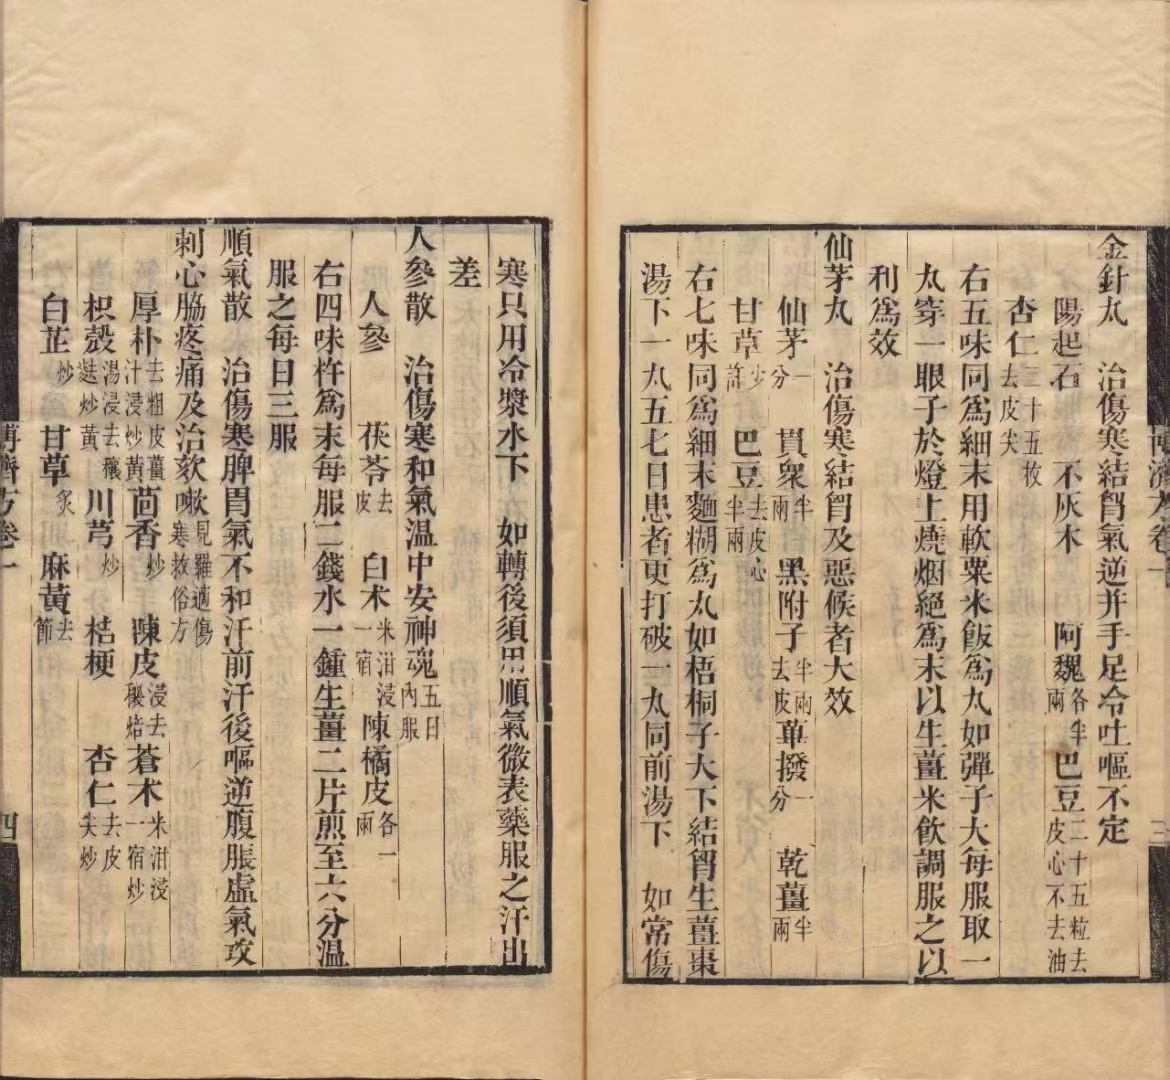 金針丸　治傷寒結胷氣逆并手足冷吐嘔不定
陽起石　不灰木　阿魏各半兩　巴豆二十五粒去皮心不去油
杏仁二十五枚去皮尖
右五味同爲細末用軟粟米飯爲丸如彈子大每服取一
丸穿一眼子於燈上燒烟絕爲末以生薑米飮調服之以
利爲效
仙茅丸　治傷寒結胷及惡候者大效
仙茅一分　貫衆半兩　黑附子半兩去皮　蓽撥一分　乾薑半兩
甘草少許　巴豆去皮心半兩
右七味同爲細末麵糊爲丸如梧桐子大下結胷生薑棗
湯下一丸五七日患者更打破一丸同前湯下　如常傷
三
寒只用冷漿水下　如轉後須用順氣微表藥服之汗出
差
人參散　治傷寒和氣溫中安神魂五日內服
人參　茯苓去皮　白术米泔浸一宿　陳橘皮各一兩
右四味杵爲末每服二錢水一鍾生薑二片煎至六分溫
服之每日三服
順氣散　治傷寒脾胃氣不和汗前汗後嘔逆腹脹虛氣攻
刺心脇疼痛及治欬嗽見羅適傷寒救俗方
厚朴去粗皮薑汁浸炒黃　茴香炒　陳皮浸去穰焙　蒼术米泔浸一宿炒
枳殼湯浸去穰麩炒黃　川芎炒　桔梗　杏仁去皮尖炒
白芷炒　甘草炙　麻黃去節
博濟方卷一
四